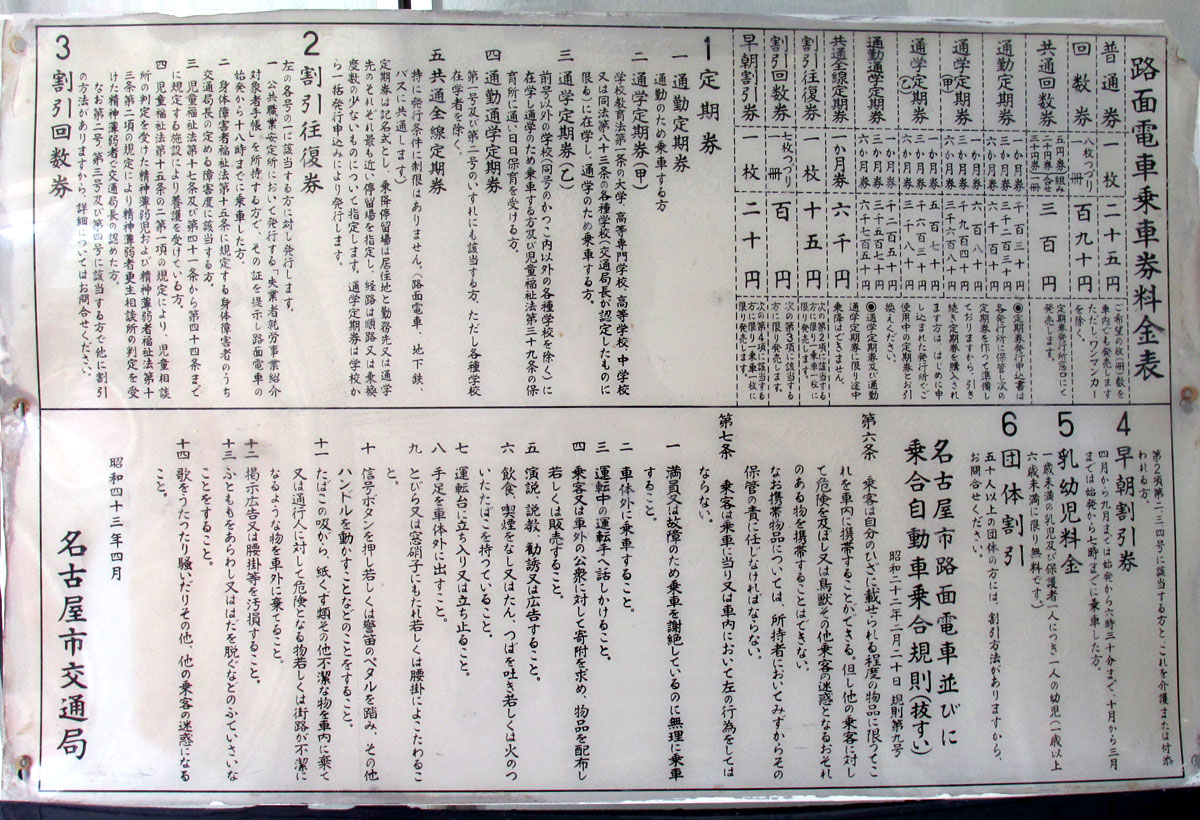 路面電車乗車券料金表
普通券 一枚 二十五円 ご希望の枚(冊)数を
車内でも発売します
ただし、ワンマンカー
を除く。
回数券 八枚つづり 一冊 百九十円
共通回数券 三百円 定期券発行所窓口にて
発売します。
通勤定期券 一か月券 千百三十円
三か月券 三千二百三十円
六か月券 六百八十円
通学定期券(甲)
通学定期券(乙)
通勤通学定期券
共通全線定期券 一か月券 六千円
割引往復券 一枚 十五円 次の第2項に該当する
方に限り一乗車一枚に
限り発売します。
割引回数券 七枚つづり 一冊 百円 次の第3項に該当する
方に限り発売します。
早朝割引券 一枚 二十円 次の第4項に該当する
方に限り一乗車一枚に
限り発売します。
◉定期券発行申込書は
各発行所に保管し次の
定期券を作って準備し
ておりますから、引き
続き定期券を購入され
ます方は、はじめに申
し込まれた発行所でご
使用中の定期券とお引
換えください。
◉通学定期券及び通勤
通学定期券に限り途中
乗降はできません。
1 定期券
一 通勤定期券
通勤のため乗車する方
二 通学定期券(甲)
学校教育法第一条の大学、高等専門学校、高等学校、中学校
又は同法第八十三条の各種学校(交通局長が認定したものに
限る)に在学し、通学のため乗車する方。
三 通学定期券(乙)
前号以外の学校(同号のかっこ内以外の各種学校を除く)に
在学し通学のため乗車する方及び児童福祉法第三十九条の保
育所に通い日日保育を受ける方。
四 通勤通学定期券
第一号及び第二号のいずれにも該当する方、ただし各種学校
在学者を除く。
五 共通全線定期券
特に発行条件に制限はありません。(路面電車、地下鉄、
バスに共通します)
定期券は記名式とし、乗降停留場は居住地と勤務先又は通学
先のそれぞれ最も近い停留場を指定し、経路は順路又は乗換
度数の少ないものについて指定します。通学定期券は学校か
ら一括発行申込みにかぎり発行します。
2 割引往復券
左の各号の一に該当する方に対し発行します。
一 公共職業安定所において発行する「失業者就労事業紹介
対象者手帳」を所持する方で、その証を提示し路面電車の
始発から十八時までに乗車した方。
二 身体障害者福祉法第十五条に規定する身体障害者のうち
交通局長の定める障害度に該当する方。
三 児童福祉法第三十七条及び第四十一条から第四十四条まで
に規定する施設により養護を受けている方。
四 児童福祉法第十五条の二第一項の規定により、児童相談
所の判定を受けた精神薄弱児および精神薄弱者福祉法第十
三条第二項の規定により精神薄弱者更生相談所の判定を受
けた精神薄弱者で交通局長の認めた方。
3 割引回数券
なお第二号、第三号及び第四号に該当する方で他に割引
の方法がありますから、詳細についてはお問合せください。
4 早朝割引券
第2項第二、三、四号に該当する方と、これを介護または付添
われる方。
四月から九月までは始発から六時三十分まで、十月から三月
までは始発から七時までに乗車した方。
5 乳幼児料金
一歳未満の乳児及び保護者一人につき一人の幼児(一歳以上
六歳未満に限り無料です。)
6 団体割引
五十人以上の団体の方には、割引方法がありますから、
お問合せください。
名古屋市路面電車並びに
乗合自動車乗合規則(抜すい)
昭和二十二年二月二十日 規則第九号
第六条 乗客は自分のひざに載せられる程度の物品に限ってこ
れを車内に携帯することができる。但し他の乗客に対し
て危険を及ぼし又は鳥獣その他乗客の迷惑となるおそれ
のある物を携帯することはできない。
なお携帯物品については、所持者においてみずからその
保管の責に任じなければならない。
第七条 乗客は乗車に当り又は車内において左の行為をしては
ならない。
一 満員又は故障のため乗車を謝絶しているのに無理に乗車
すること。
二 車体外に乗車すること。
三 運転中の運転手へ話しかけること。
四 乗客又は車外の公衆に対して寄附を求め、物品を配布し
若しくは販売すること。
五 演説、説教、勧誘又は広告すること。
六 飲食、喫煙をなし又はたん、つばを吐き若しくは火のつ
いたたばこを持っていること。
七 運転台に立ち入り又は立ち止ること。
八 手足を車体外に出すこと。
九 とびら又は窓硝子にもたれ若しくは腰掛によこたわるこ
と。
十 信号ボタンを押し若しくは警笛のペタルを踏み、その他
ハンドルを動かすことなどのことをすること。
十一 たばこの吸がら、紙くず類その他不潔な物を車内に棄て
又は通行人に対して危険となる物若しくは街路が不潔に
なるような物を車外に棄てること。
十二 掲示広告又は腰掛等を汚損すること。
十三 ふとももをあらわし又ははだを脱ぐなどのふていさいな
ことをすること。
十四 歌をうたったり騒いだりその他、他の乗客の迷惑になる
こと。
昭和四十三年四月
名古屋市交通局